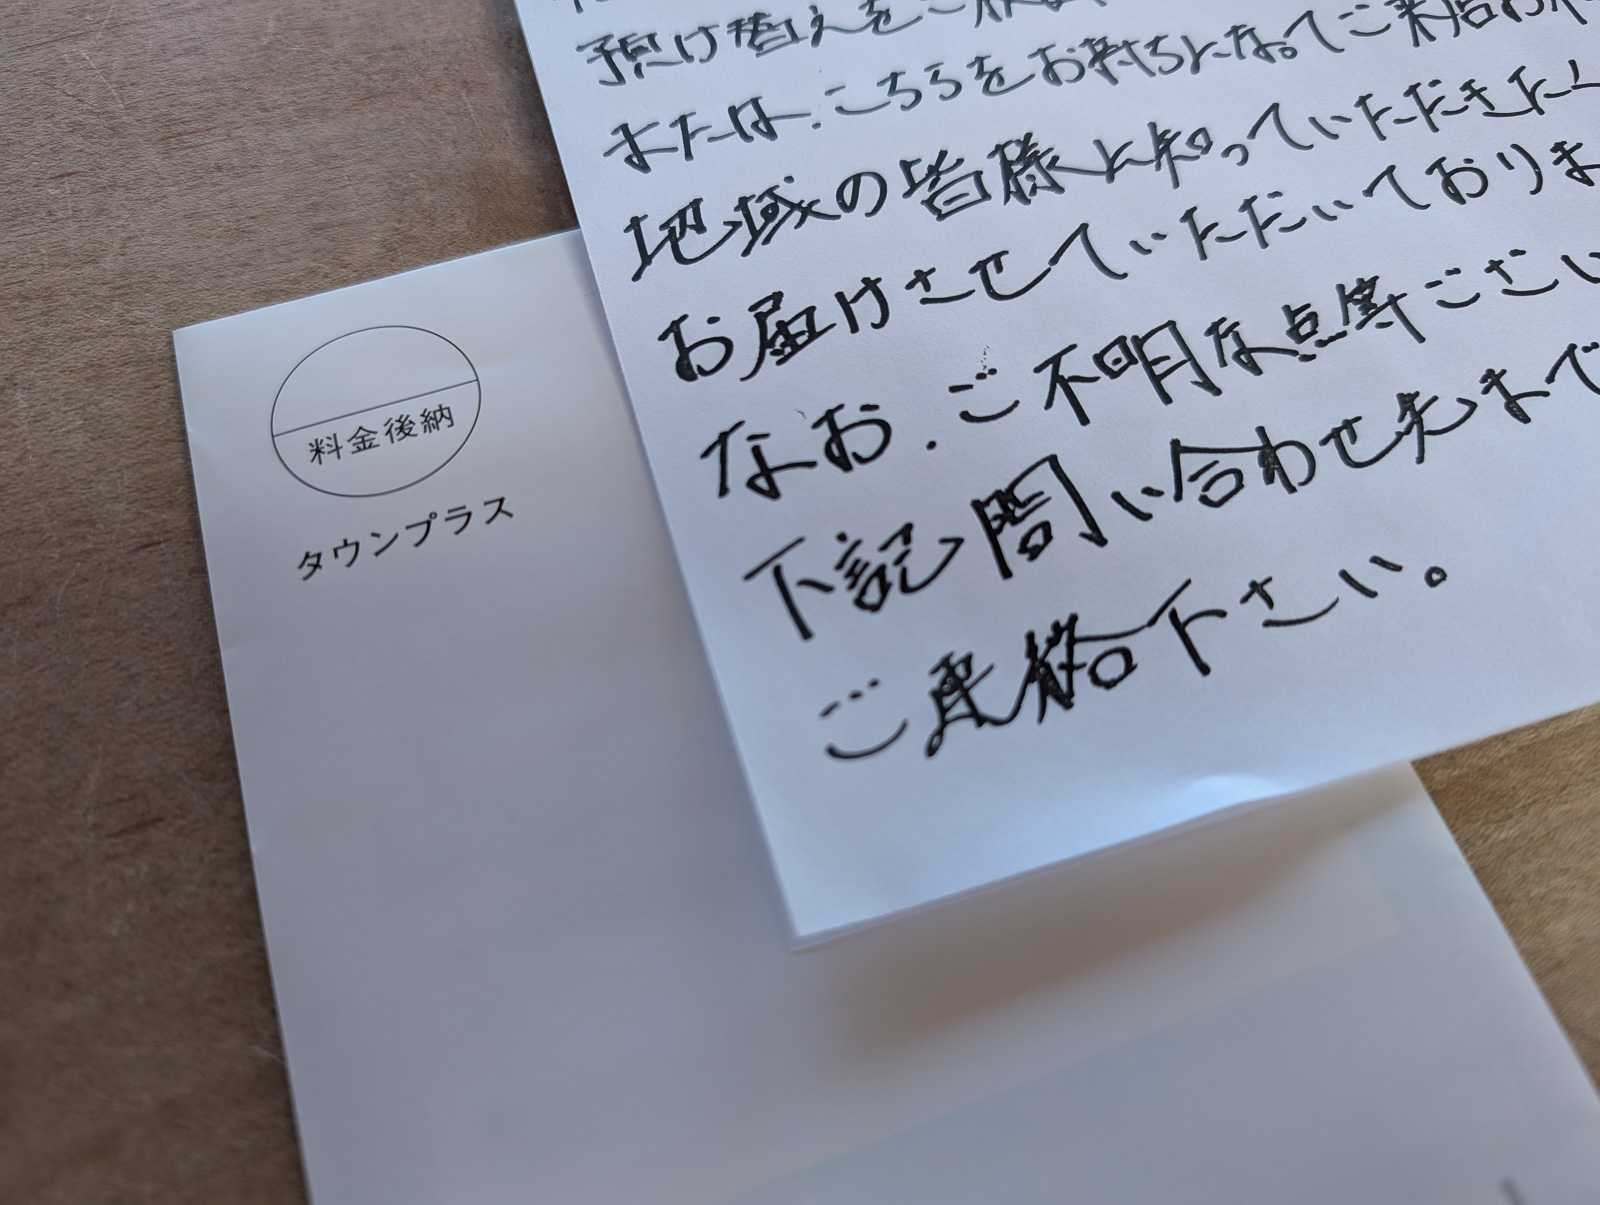 預け替えをご
または、こちらをお持ちになってご来店お
地域の皆様に知っていただきたく
お届けさせていただいておりま
なお、ご不明な点等ござい
下記問い合わせ先まで
ご連絡下さい。
料金後納
タウンプラス